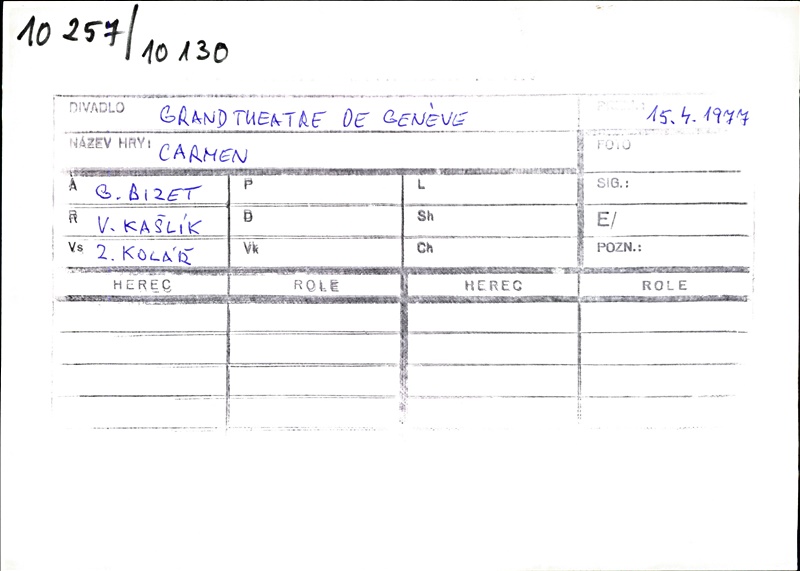 10 257/10 130
DIVADLO GRAND THEATRE DE GENÈVE 15.4.1977
NÁZEV HRY: CARMEN FOTO
A G. BIZET P L SIG.:
R V. KAŠLÍK D Sh E/
Vs Z. KOLÁŘ Vk Ch POZN.:
HEREC ROLE HEREC ROLE